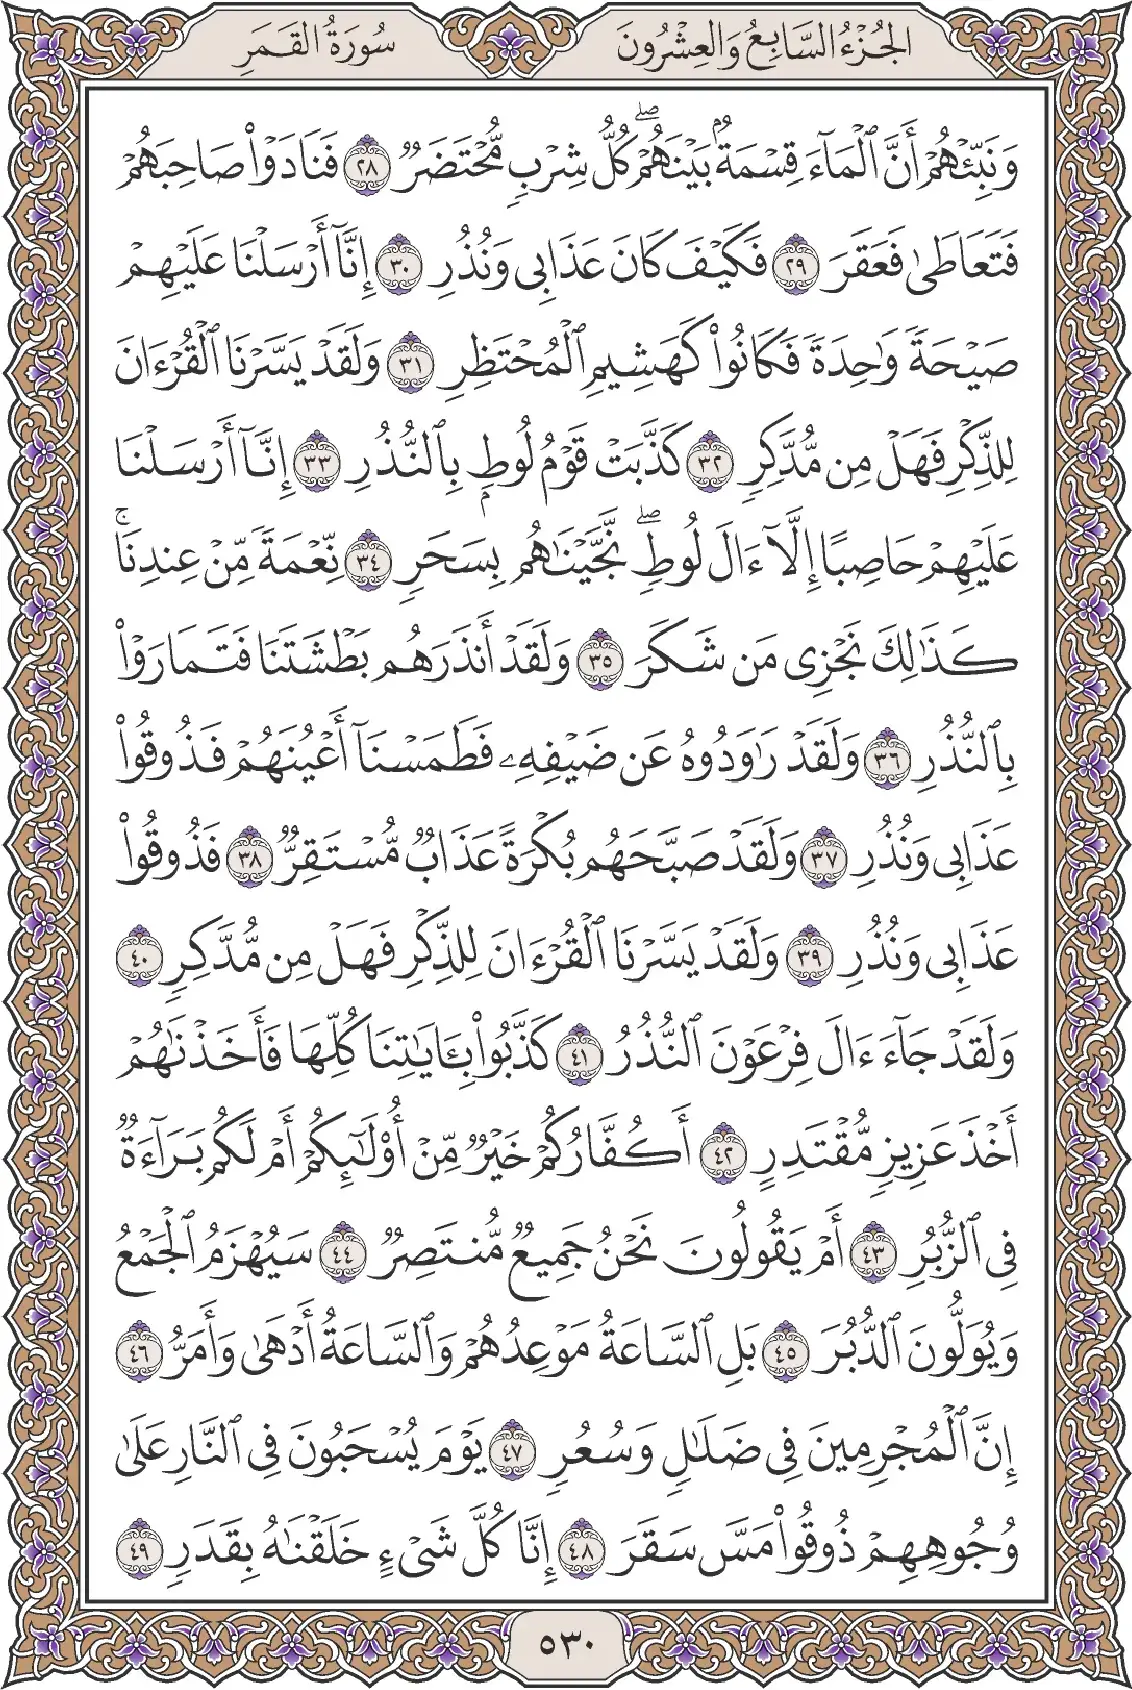 الجُزْءُ السَّابِعُ وَالعِشْرُونَ
سُورَةُ القَمَرِ
وَنَبِّئْهُمْ أَنَّ ٱلْمَآءَ قِسْمَةٌۢ بَيْنَهُمْۖ كُلُّ شِرْبٖ مُّحْتَضَرٞ ٢٨ فَنَادَوْاْ صَاحِبَهُمْ
فَتَعَاطَىٰ فَعَقَرَ ٢٩ فَكَيْفَ كَانَ عَذَابِي وَنُذُرِ ٣٠ إِنَّآ أَرْسَلْنَا عَلَيْهِمْ
صَيْحَةٗ وَٰحِدَةٗ فَكَانُواْ كَهَشِيمِ ٱلْمُحْتَظِرِ ٣١ وَلَقَدْ يَسَّرْنَا ٱلْقُرْءَانَ
لِلذِّكْرِ فَهَلْ مِن مُّدَّكِرٖ ٣٢ كَذَّبَتْ قَوْمُ لُوطِۭ بِٱلنُّذُرِ ٣٣ إِنَّآ أَرْسَلْنَا
عَلَيْهِمْ حَاصِبًا إِلَّآ ءَالَ لُوطٖۖ نَّجَّيْنَٰهُم بِسَحَرٖ ٣٤ نِّعْمَةٗ مِّنْ عِندِنَاۚ
كَذَٰلِكَ نَجْزِي مَن شَكَرَ ٣٥ وَلَقَدْ أَنذَرَهُم بَطْشَتَنَا فَتَمَارَوْاْ
بِٱلنُّذُرِ ٣٦ وَلَقَدْ رَٰوَدُوهُ عَن ضَيْفِهِۦ فَطَمَسْنَآ أَعْيُنَهُمْ فَذُوقُواْ
عَذَابِي وَنُذُرِ ٣٧ وَلَقَدْ صَبَّحَهُم بُكْرَةً عَذَابٞ مُّسْتَقِرّٞ ٣٨ فَذُوقُواْ
عَذَابِي وَنُذُرِ ٣٩ وَلَقَدْ يَسَّرْنَا ٱلْقُرْءَانَ لِلذِّكْرِ فَهَلْ مِن مُّدَّكِرٖ ٤٠
وَلَقَدْ جَآءَ ءَالَ فِرْعَوْنَ ٱلنُّذُرُ ٤١ كَذَّبُواْ بِـَٔايَٰتِنَا كُلِّهَا فَأَخَذْنَٰهُمْ
أَخْذَ عَزِيزٖ مُّقْتَدِرٍ ٤٢ أَكُفَّارُكُمْ خَيْرٞ مِّنْ أُوْلَٰٓئِكُمْ أَمْ لَكُم بَرَآءَةٞ
فِي ٱلزُّبُرِ ٤٣ أَمْ يَقُولُونَ نَحْنُ جَمِيعٞ مُّنتَصِرٞ ٤٤ سَيُهْزَمُ ٱلْجَمْعُ
وَيُوَلُّونَ ٱلدُّبُرَ ٤٥ بَلِ ٱلسَّاعَةُ مَوْعِدُهُمْ وَٱلسَّاعَةُ أَدْهَىٰ وَأَمَرُّ ٤٦
إِنَّ ٱلْمُجْرِمِينَ فِي ضَلَٰلٖ وَسُعُرٖ ٤٧ يَوْمَ يُسْحَبُونَ فِي ٱلنَّارِ عَلَىٰ
وُجُوهِهِمْ ذُوقُواْ مَسَّ سَقَرَ ٤٨ إِنَّا كُلَّ شَيْءٍ خَلَقْنَٰهُ بِقَدَرٖ ٤٩
٥٣٠